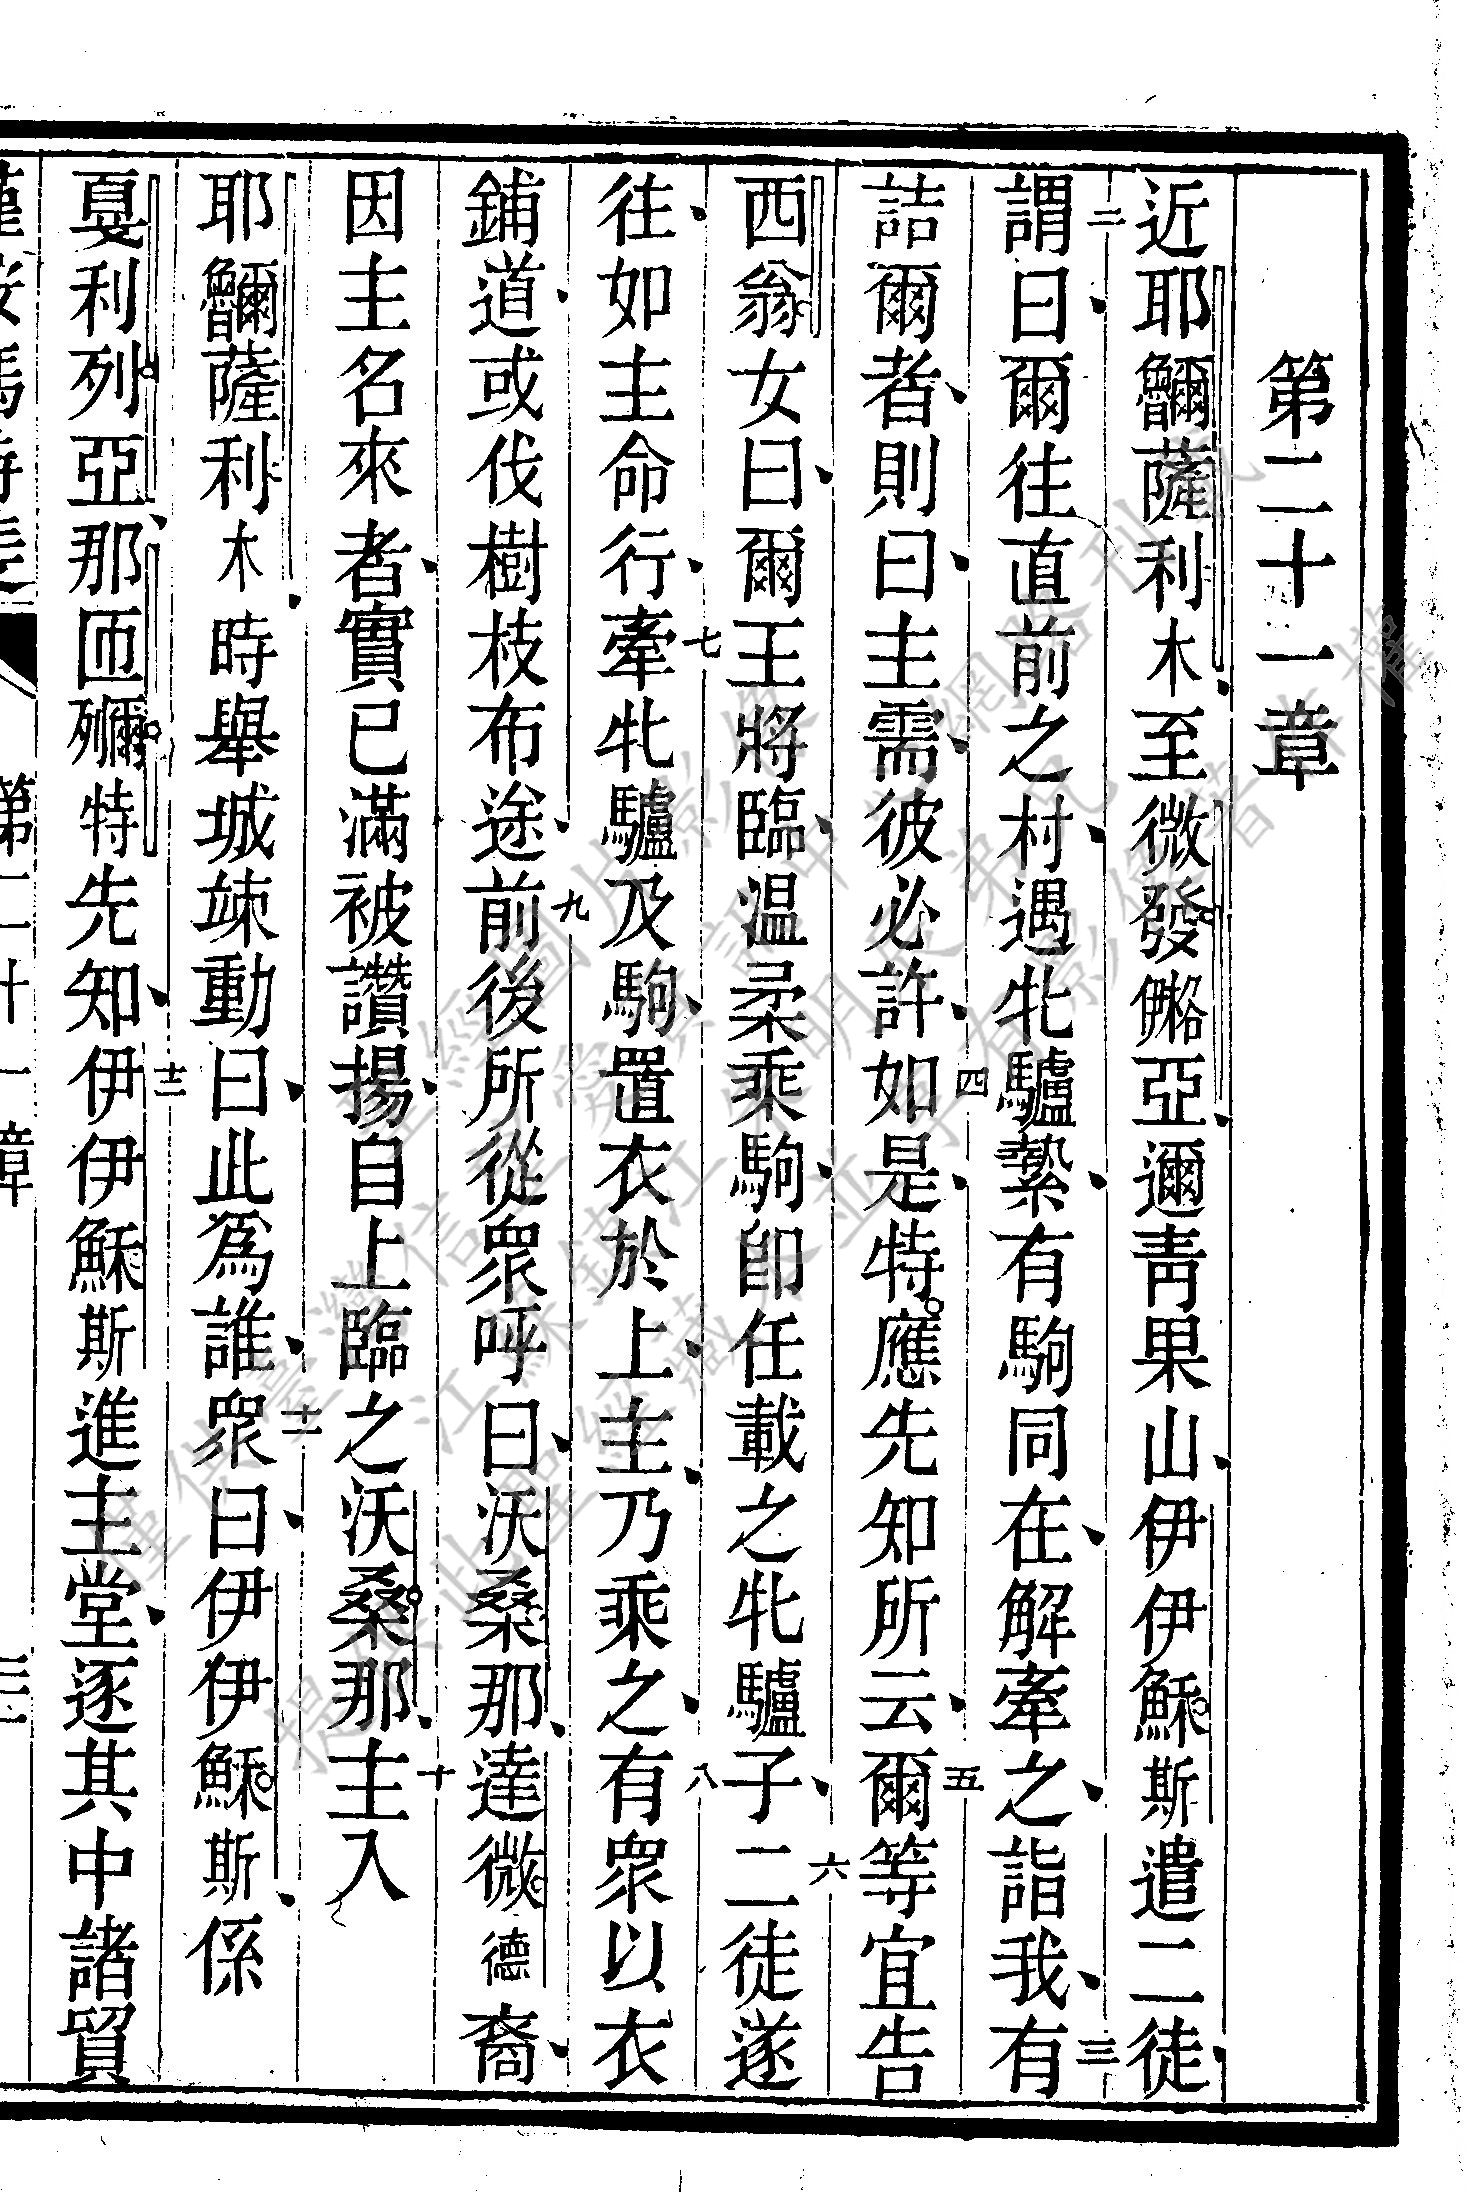 第二十一章
近耶𩼣薩利木至微發𪩘亞邇青果山伊伊穌斯遣二徒
二謂曰爾往直前之村遇牝驢縶有駒同在解牽之詣我三有
詰爾者則曰主需彼必許四如是特應先知所云五爾等宜告
西翁女曰爾王將臨温柔乘駒卽任載之牝驢子六二徒遂
往如主命行七牽牝驢及駒置衣於上主乃乘之八有衆以衣
鋪道或伐樹枝布途九前後所從衆呼曰沃桑那達微德裔
因主名來者實已滿被讚揚自上臨之沃桑那十主入
耶𩼣薩利木時舉城竦動曰此爲誰十一衆曰伊伊穌斯係
戛利列亞那匝㺠特先知十二伊伊穌斯進主堂逐其中諸貿
第二十一章